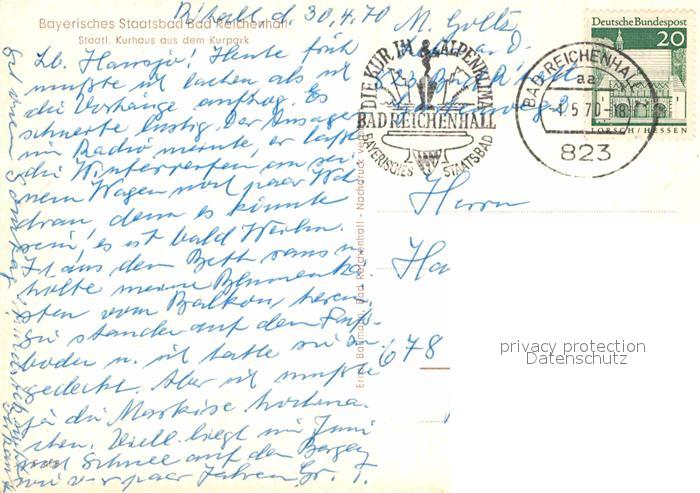 Bayerisches Staatsbad Bad Reichenhall
Staatl. Kurhaus aus dem Kurpark
d. 30.4.70
Lb. Hansjo! Heute früh
mußte ich lachen als ich
die Vorhänge aufzog. Es
schneite lustig. Der Ansager
im Radio meinte, er laßt
die Winterreifen an sei-
nem Wagen noch paar Wo
dran, denn es könnte
sein, es ist bald Weihn.
Ist aus dem Bett raus u.
holte meine Blumenka-
sten vom Balkon herein.
Sie standen auf dem Fuß-
boden u. ich hatte sie
gedeckt. Aber ich mußte
ja die Markise hochma-
chen. Viell. liegt im Juni
noch Schnee auf den Bergen
wie v. paar Jahren. Gr.
M. Goltz
Herrn
Ha
678
DIE KUR IM ALPENKLIMA
BAD REICHENHALL
BAYERISCHES STAATSBAD
BAD REICHENHALL
aa
-4.5.70-18
823
Deutsche Bundespost
20
LORSCH/HESSEN
Bad Reichenhall - Nachdruck
privacy protection
Datenschutz